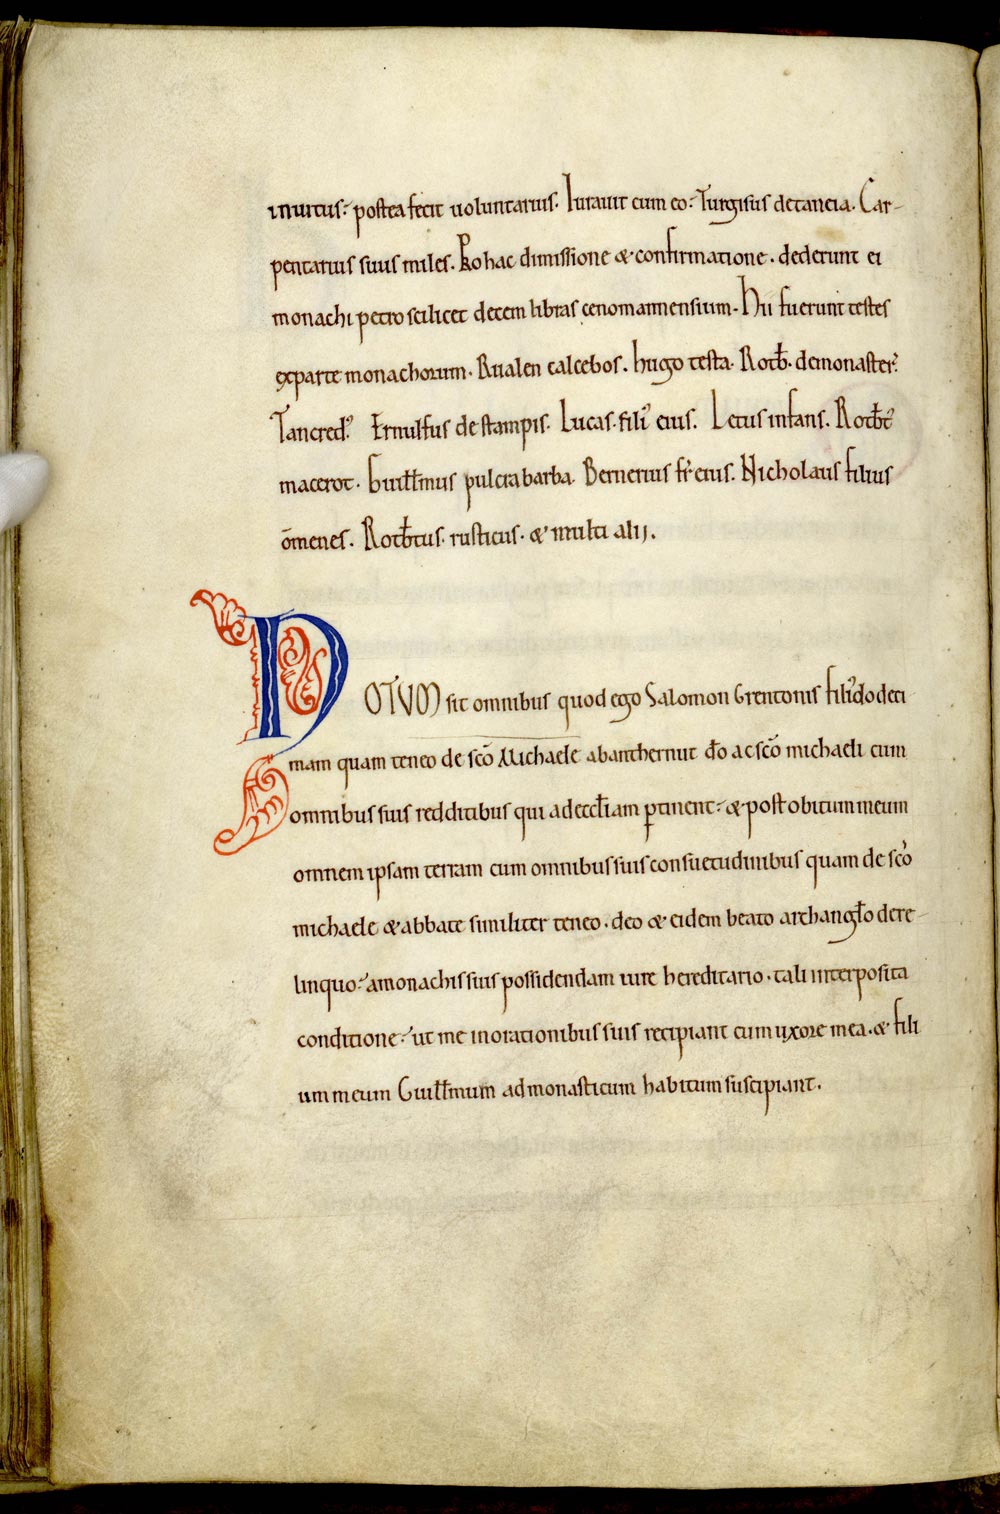 inuitus. postea fecit uoluntarius. Iurauit cum eo. Turgisus detancia. Car-
pentarius suus miles. Pro hac dimissione & confirmatione. dederunt ei
monachi petro scilicet decem libras cenomannensium. Hii fuerunt testes
exparte monachorum. Rualen calcebos. hugo testa. Rotb̄. demonaster᷒.
Tancred᷒. Ernulfus de stampis. Lucas. fili᷒ eius. Letus infans. Rotb̄t᷒
macerot. Guill̄mus pulcrabarba. Bernerius fr̄ eius. Nicholaus filius
ōmenes. Rotb̄tus. rusticus. & multi alij.
NOTUM sit omnibus quod ego Salomon Grentonis fili᷒ do deci-
mam quam teneo de scō Michaele abanthernut dō ac scō michaeli cum
omnibus suis redditibus qui adeccl̄iam ꝑtinent. & post obitum meum
omnem ipsam terram cum omnibus suis consuetudinibus quam de scō
michaele & abbate similiter teneo. deo & eidem beato archangl̄o dere-
linquo. amonachis suis possidendam iure hereditario. tali interposita
conditione. ut me inorationibus suis recipiant cum uxore mea. & fili
um meum Guill̄mum admonasticum habitum suscipiant.